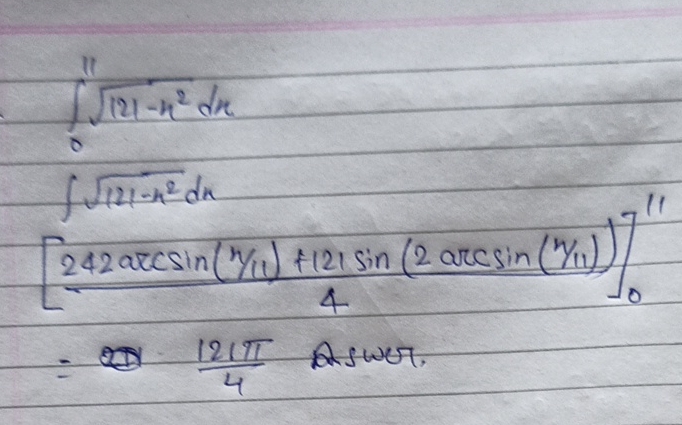 ∫₀¹¹ √(121-x²) dx
∫ √(121-x²) dx
[(242 arcsin(x/11) + 121 sin(2 arcsin(x/11)))/4]₀¹¹
= 121π/4 Answer.